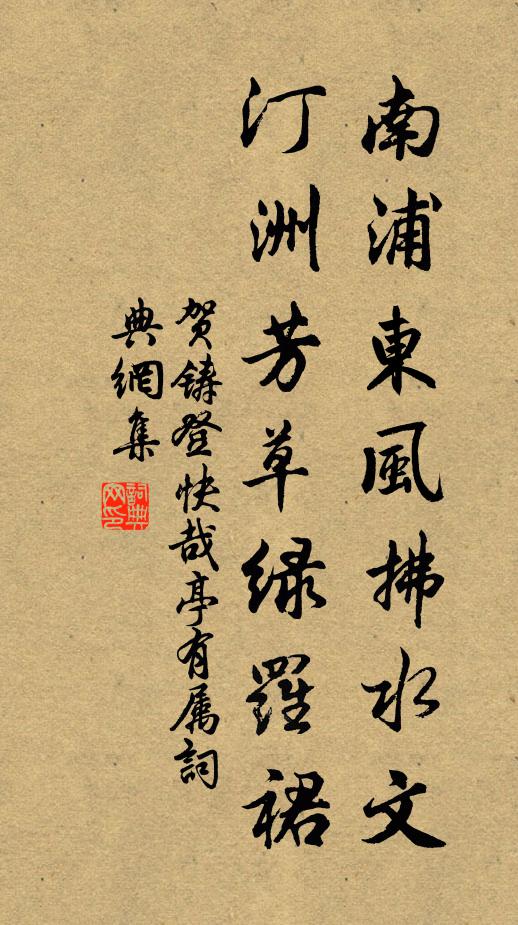 南浦東風拂水文
汀洲芳草綠羅裙
贺鑄登快哉亭有属詞
典網集
詞典
网印